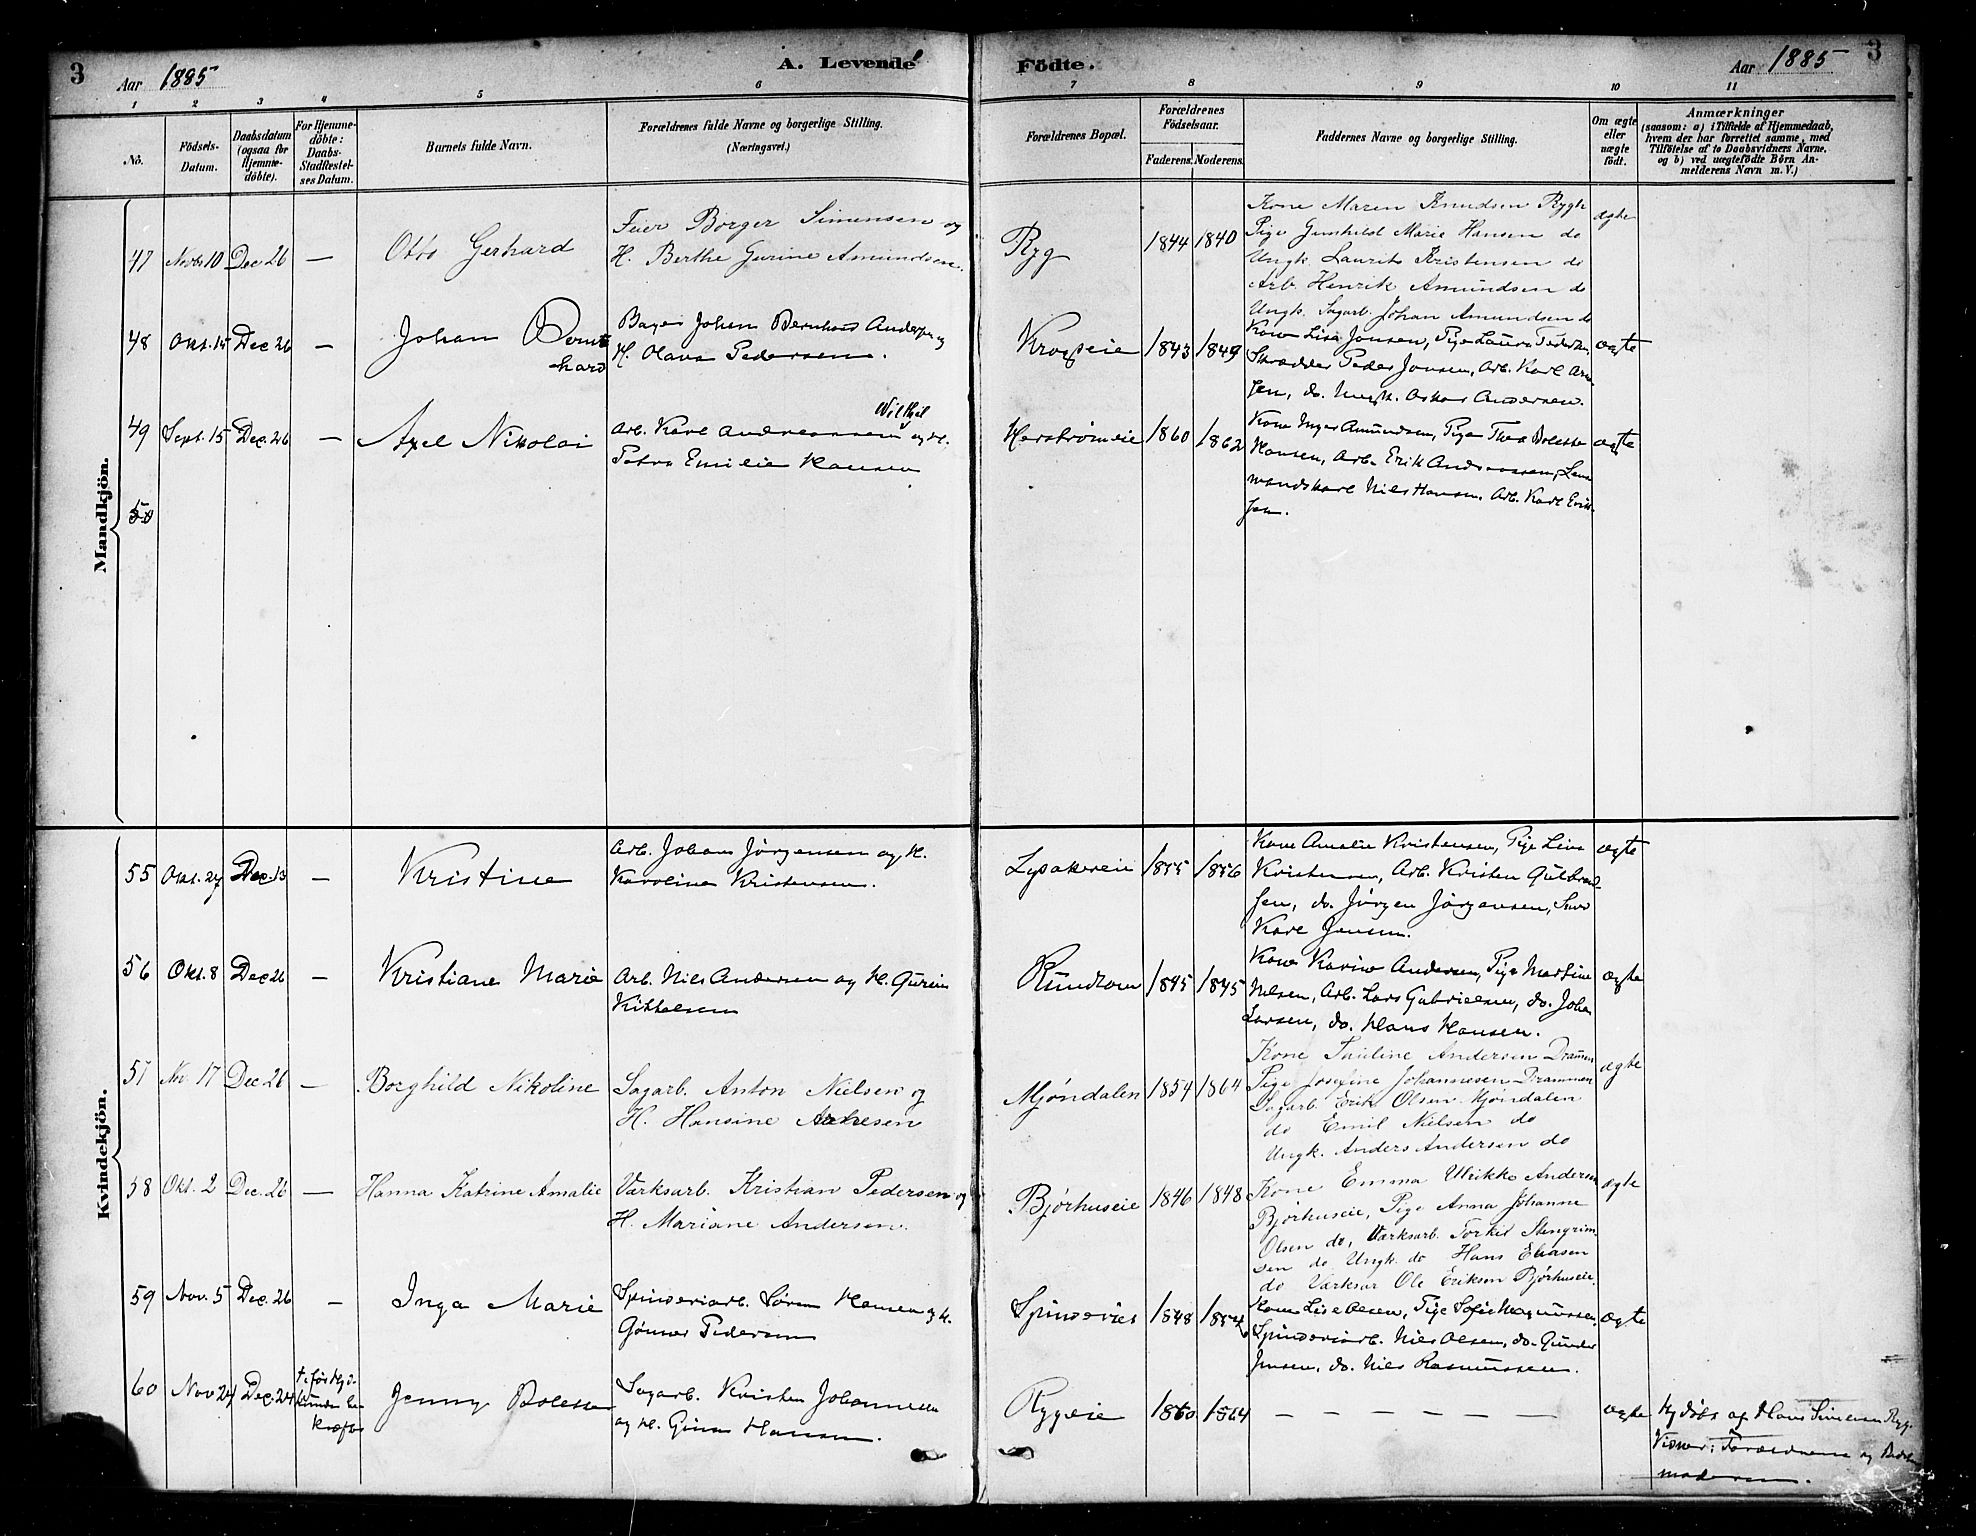 3 Aar 1885 A. Levende Fødte. Aar 1885 3
1 2 3 4 5 6 7 8 9 10 11
No.
Födsels-
Datum.
Daabsdatum
(ogsaa for
Hjemme-
döbte).
For Hjemme-
döbte:
Daabs-
Stadfæstel-
ses Datum.
Barnets fulde Navn.
Forældrenes fulde Navne og borgerlige Stilling.
(Næringsvei.)
Forældrenes Bopæl.
Forældrenes
Födselsaar.
Faderens. Moderens.
Faddernes Navne og borgerlige Stilling.
Om ægte
eller
uægte
födt.
Anmærkninger
(saasom: a) i Tilfælde af Hjemmedaab,
hvem der har forrettet samme, med
Tilföielse af to Daabsvidners Navne,
og b) ved uægtefödte Börn An-
melderens Navn m. V.)
Mandkjön.
47 Novbr 10 Dec 26 — Otto Gerhard
Feier Borger Simensen og
H. Berthe Gurine Amundsen.
Ryg 1844 1840
Kone Maren Knudsen Rygh
Pige Gunhild Marie Hansen do
Ungk. Laurits Kristensen do
Arb. Henrik Amundsen do
Ungk. Sagarb. Johan Amundsen do
ægte
48 Okt. 15 Dec 26 — Johan Bern
hard
Johan Bernhard
H. Olava Pedersen.
Krogseie 1843 1849
Kone Lisa Jonsen, Pige Laura
Skrædder Peder Jonsen, Arb. Karl
sen, do.
ægte
49 Sept. 15 Dec. 26 — Axel Nikolai
Arb. Karl Andreassen og H.
Petra Emilie Hansen
Herstrømeie 1860 1862
Kone Inger Amundsen, Pige Thea
Hansen, Arb. Erik Andreassen,
Niels Hansen, Arb. Karl Erik-
sen.
ægte
50
Kvindekjön.
55 Okt. 27 Dec. 13 — Kristine
Arb. Johan Jørgensen og H.
Karoline Kristensen.
Lysakereie 1855 1856
Kone Amalie Kristensen, Pige Lina
Kristensen, Arb. Kristen Gulbrand-
sen, do. Jørgen Jørgensen,
Karl Jensen.
ægte
56 Okt. 8 Dec 26 — Kristiane Marie
Arb. Niels Andersen og H. Gurine
Kittelsen
Rundtom 1845 1845
Kone Karine Andersen, Pige Martine
Nilsen, Arb. Lars Gabrielsen, do. Johan
Larsen, do. Hans Hansen.
ægte
57 Nov 17 Dec 26 — Borghild Nikoline
Sagarb. Anton Nielsen og
H. Hansine
Mjøndalen 1854 1864
Kone Pauline Andersen Drammen
Pige Josefine Johannesen Drammen
Sagarb. Erik Olsen Mjøndalen
do Emil Nielsen do
Ungk. Anders Andersen do
ægte
58 Okt. 2 Dec. 26 — Hanna Katrine Amalie
Værksarb. Kristian Pedersen og
H. Mariane Andersen.
Bjørhuseie 1846 1848
Kone Emma Ulrikke Andersen
Bjørhuseie, Pige Anna Johanne
Olsen do, Værksarb. Torkil Stengrim
sen do Ungk. do Hans Eliasen
do Værksar Ole Eriksen Bjørhuseie.
ægte
59 Nov. 5 Dec. 26 — Inga Marie
Spinseriarb. Søren Hansen og H.
Pedersen
1848
Kone Lise Olsen, Pige Sofie Magnussen
Niels Olsen, do. Gunder
Jensen, do. Niels Rasmussen.
ægte
60 Nov 24 Dec. 24 Jenny
Sagarb. Kristen Johannesen
og H. Gina Hansen.
Rygeie 1860 1864
— — — — — —
ægte
Hjdøbt af Hans Simensen Ryg.
Vidner: Forældrene og
moderen.